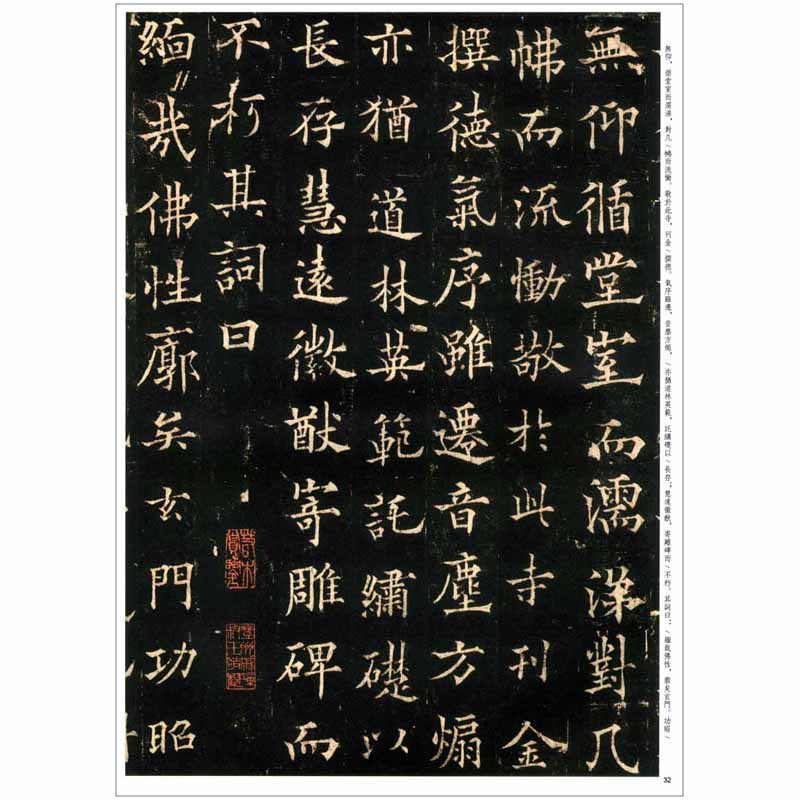 無仰循堂室而濡涕對几
怫而流慟敬於此寺刊金
撰德氣序雖遷音塵方煽
亦猶道林英範託繡礎以
長存慧遠徽猷寄雕碑而
不朽其詞曰
緬哉佛性廓矣玄門功昭
無仰。循堂室而濡涕，對几\怫而流慟。敬於此寺，刊金\撰德。氣序雖遷，音塵方煽。\亦猶道林英範，託繡礎以\長存；慧遠徽猷，寄雕碑而\不朽。其詞曰：\緬哉佛性，廓矣玄門。功昭\
32